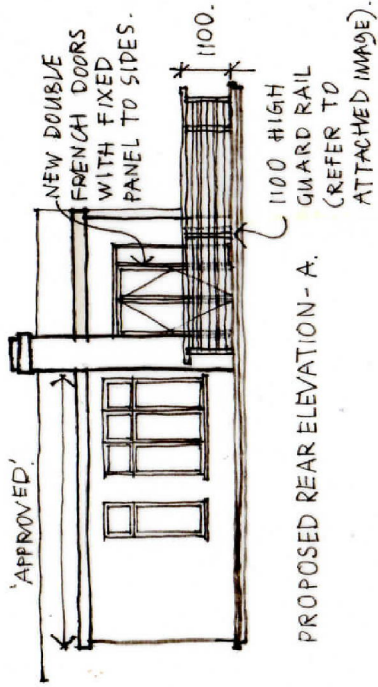 'APPROVED'
NEW DOUBLE
FRENCH DOORS
WITH FIXED
PANEL TO SIDES.
1100.
1100 HIGH
GUARD RAIL
(REFER TO
ATTACHED IMAGE).
PROPOSED REAR ELEVATION - A.